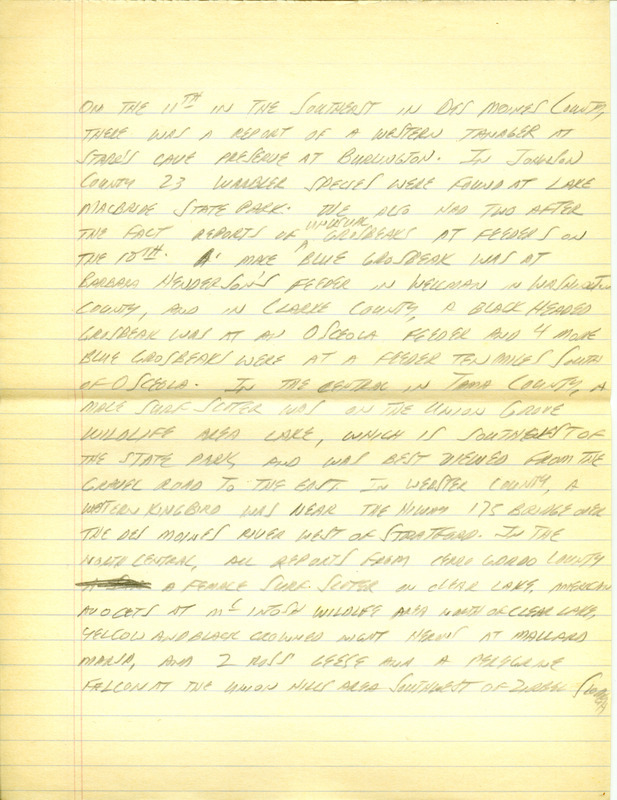 ON THE 11TH IN THE SOUTHEAST IN DES MOINES COUNTY,
THERE WAS A REPORT OF A WESTERN TANAGER AT
STARR'S CAVE PRESERVE AT BURLINGTON. IN JOHNSON
COUNTY 23 WARBLER SPECIES WERE FOUND AT LAKE
MACBRIDE STATE PARK. WE ALSO HAD TWO AFTER
THE FACT REPORTS OF UNUSUAL GROSBEAKS AT FEEDERS ON
THE 10TH. A MALE BLUE GROSBEAK WAS AT
BARBARA HENDERSON'S FEEDER IN WELLMAN IN WASHINGTON
COUNTY, AND IN CLARKE COUNTY, A BLACK HEADED
GROSBEAK WAS AT AN OSCEOLA FEEDER AND 4 MORE
BLUE GROSBEAKS WERE AT A FEEDER TEN MILES SOUTH
OF OSCEOLA. IN THE CENTRAL IN TAMA COUNTY, A
MALE SURF SCOTER WAS ON THE UNION GROVE
WILDLIFE AREA LAKE, WHICH IS SOUTHWEST OF
THE STATE PARK, AND WAS BEST VIEWED FROM THE
GRAVEL ROAD TO THE EAST. IN WEBSTER COUNTY, A
WESTERN KINGBIRD WAS NEAR THE HIWAY 175 BRIDGE OVER
THE DES MOINES RIVER WEST OF STRATFORD. IN THE
NORTH CENTRAL, ALL REPORTS FROM CERRO GORDO COUNTY
A FEMALE SURF SCOTER ON CLEAR LAKE, AMERICAN
AVOCETS AT MCINTOSH WILDLIFE AREA NORTH OF CLEAR LAKE,
YELLOW AND BLACK CROWNED NIGHT HERONS AT MALLARD
MARSH, AND 2 ROSS' GEESE AND A PEREGRINE
FALCON AT THE UNION HILLS AREA SOUTHWEST OF